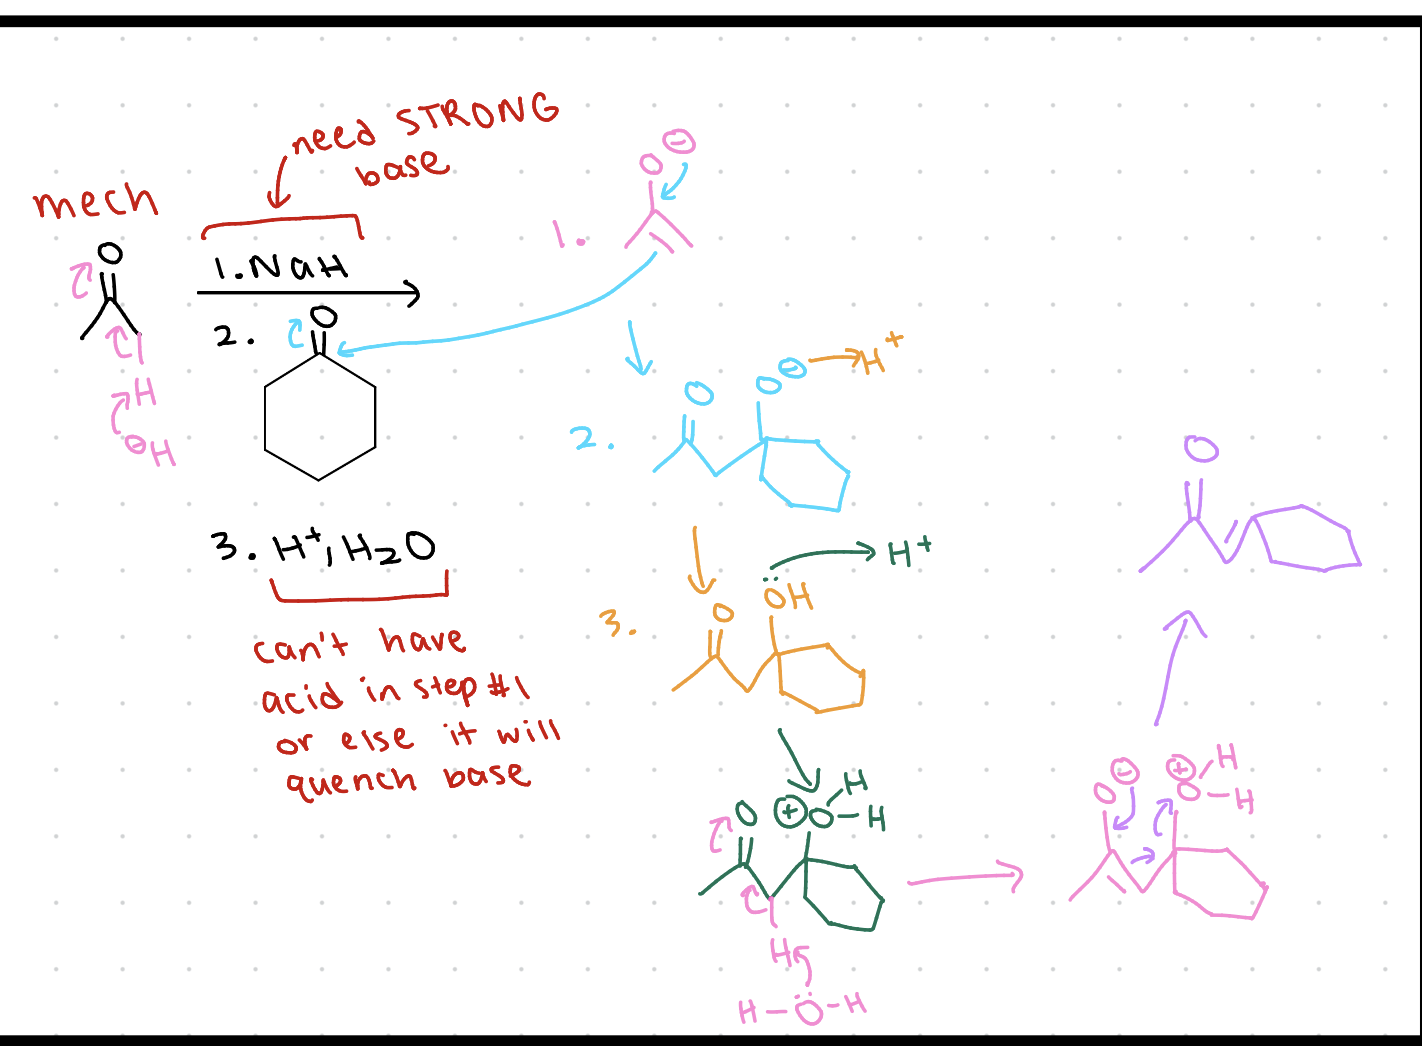 need STRONG
base
mech
O
1. NaH
H
⊖H
2.
O
3. H⁺, H₂O
can't have
acid in step #1
or else it will
quench base
1.
O ⊖
2.
O
O ⊖
H⁺
3.
O
ÖH
H⁺
O
⊕ O
H
H
H
H – Ö – H
O ⊖
⊕ O
H
H
O